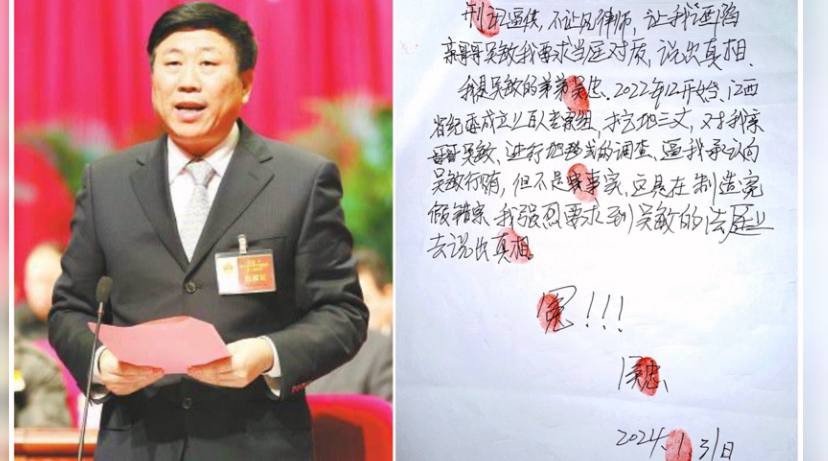 刑讯逼供，不让见律师，让我诬陷
亲哥哥吴敏我要求当庭对质，说出真相.
我是吴敏的弟弟吴忠.2022年12开始、江西
省纪委成立上百人专案组，挖地三丈，对我亲
哥哥吴敏、进行地毯式的调查、逼我承认向
吴敏行贿，但不是事实、这是在制造冤
假错案.我强烈要求到吴敏的法庭上
去说出真相.
冤！！！
吴忠
2024.1.31日